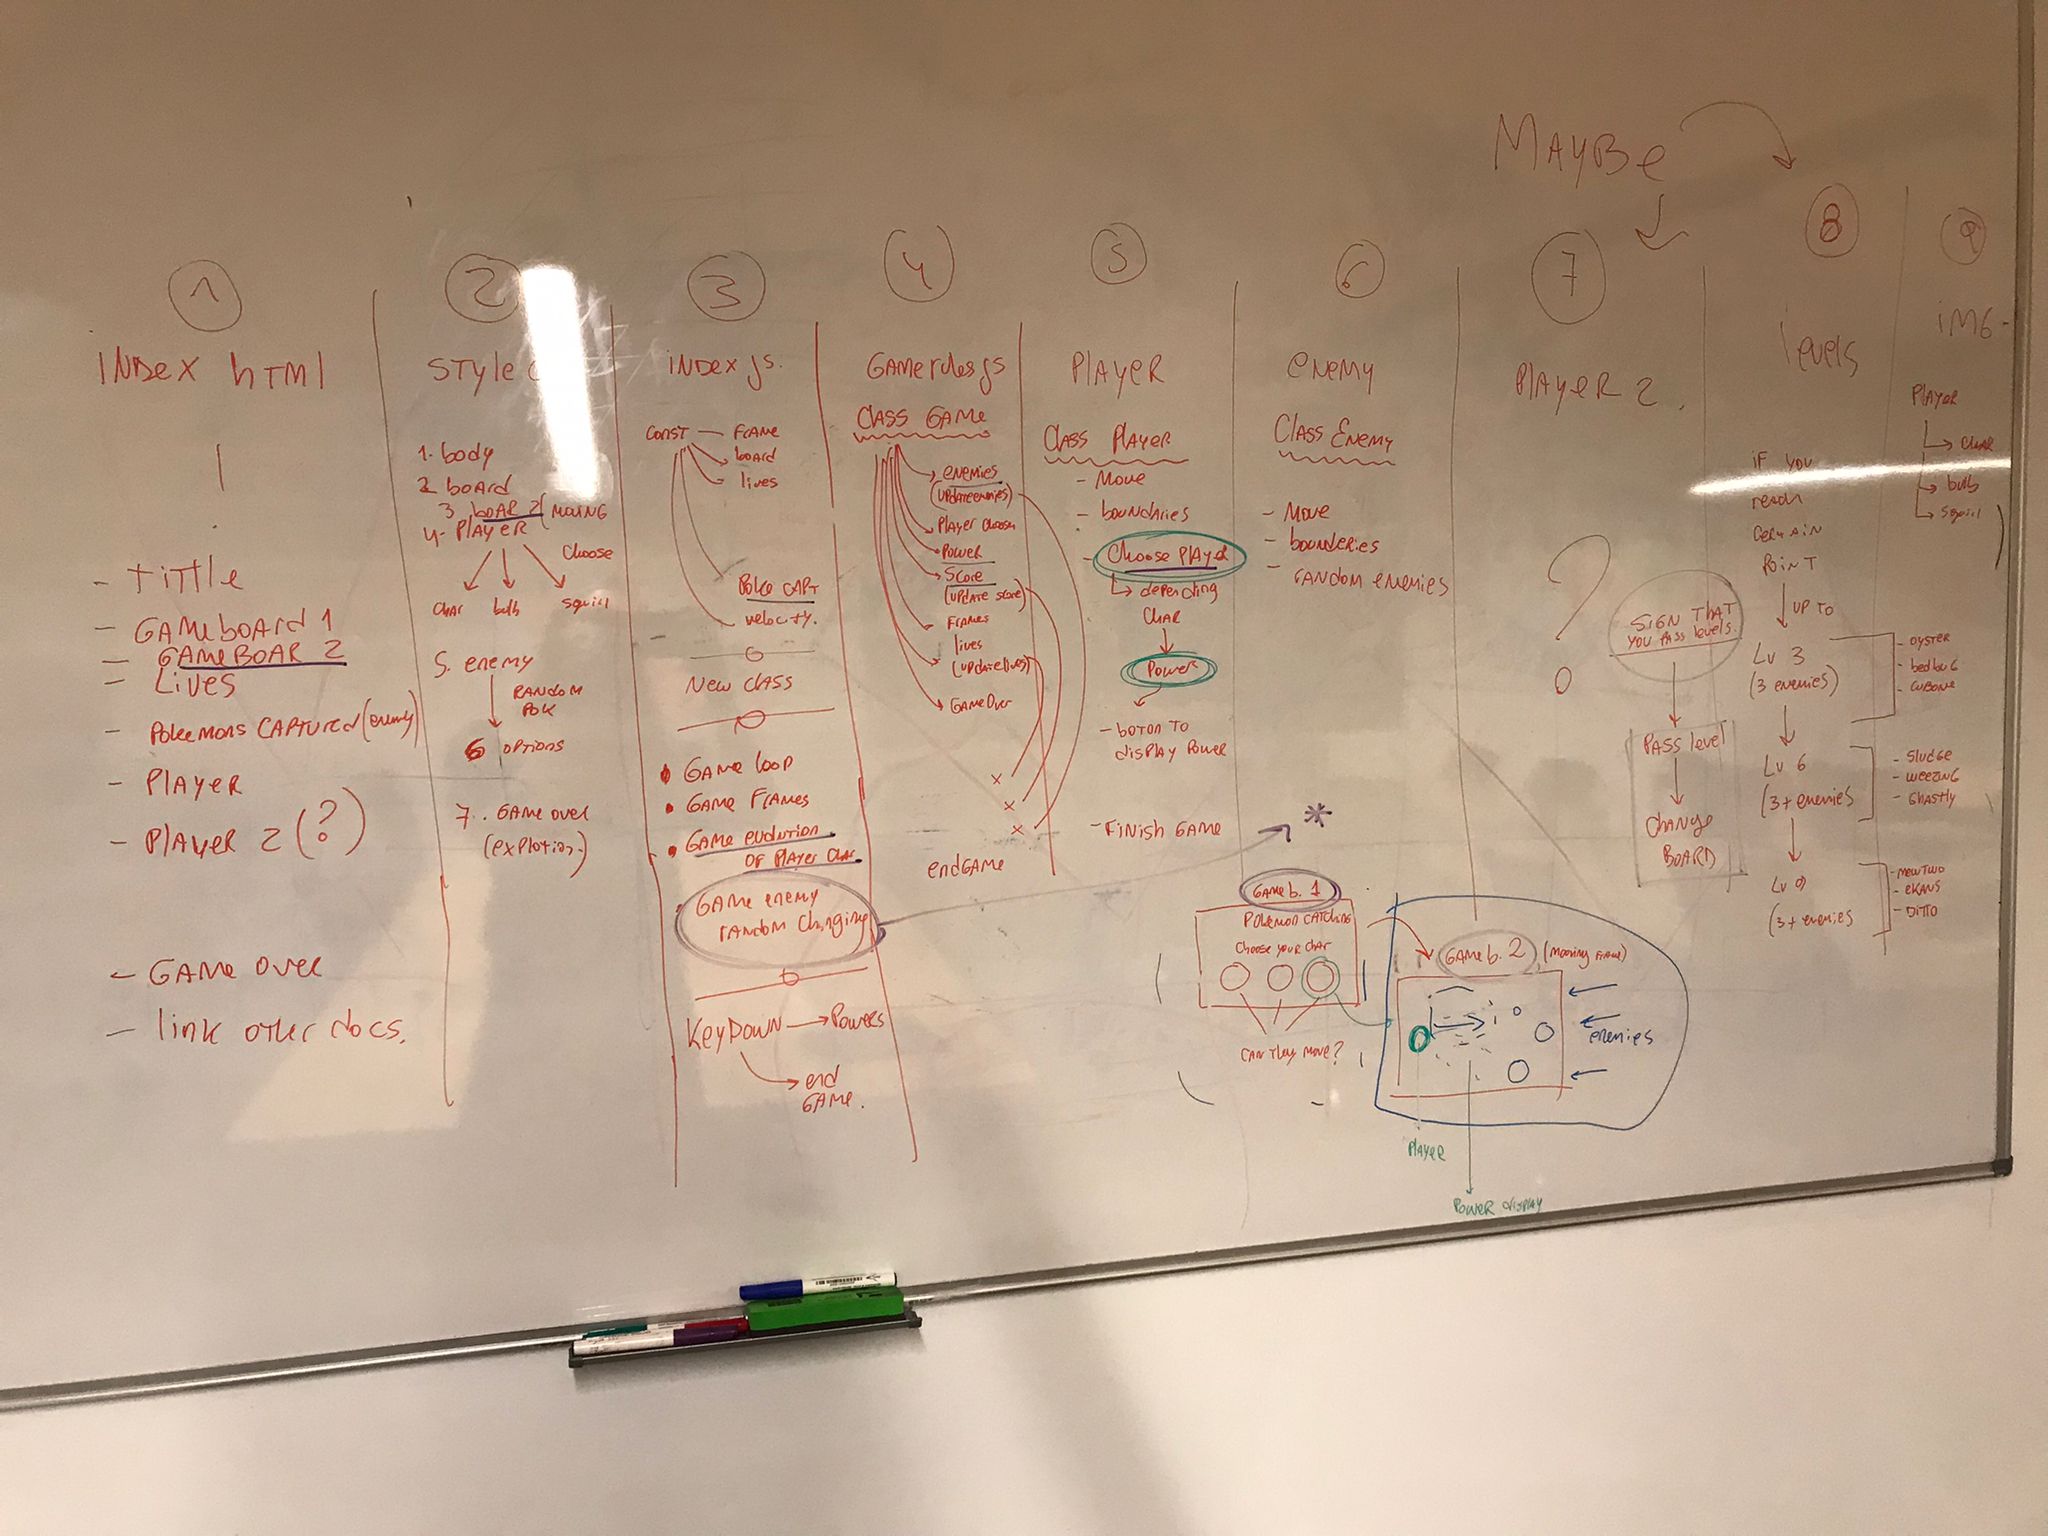 MAYBE
1
INDEX HTML
- TITTLE
- GAMEBOARD 1
- GAMEBOAR 2
- LIVES
- POKEMONS CAPTURED (enemy)
- PLAYER
- PLAYER 2 (?)
- GAME OVER
- link other docs.
2
STYLE
1. body
2 board
3 BOAR 2 (MOVING
4- PLAYER
Choose
CHAR bulb squirl
5. enemy
RANDOM
POK
6 OPTIONS
7. GAME over
(explotion)
3
INDEX js.
CONST — FRAME
board
lives
POKE CAPT
velocity.
New CLASS
• GAME LOOP
• GAME FRAMES
• GAME evolution
OF PLAYER CHAR
GAME enemy
RANDOM Changing
KEYDOWN → POWERS
end
GAME.
4
GAMErulesjs
CLASS GAME
enemies
(UPDATE enemies)
PLAYER Choosen
POWER
SCORE
(UPDATE SCORE)
FRAMES
lives
(UPDATE lives)
GAME OVER
x
x
x
endGAME
5
PLAYER
CLASS PLAYER
- MOVE
- boundries
- CHOOSE PLAYER
depending
CHAR
POWER
- BOTON TO
DISPLAY POWER
- FINISH GAME
6
ENEMY
CLASS ENEMY
- MOVE
- bounderies
- RANDOM ENEMIES
*
GAME b. 1
POKEMON CATCHING
Choose your CHAR
CAN they move?
GAME b. 2 (mooving FRAME)
enemies
PLAYER
POWER DISPLAY
7
PLAYER 2.
?
SIGN THAT
YOU PASS levels.
PASS level
CHANGE
BOARD
8
levels
IF YOU
reach
CERTAIN
POINT
UP TO
LV 3
(3 enemies)
- OYSTER
- bedbug
- CUBONE
LV 6
(3+ enemies
- SLUDGE
- WEEZING
- GHASTLY
LV 9
(3+ enemies
- MEWTWO
- EKANS
- DITTO
9
IMG -
PLAYER
CHAR
bulb
squirl